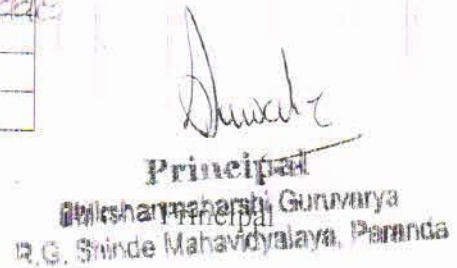 Principal
Shikshanmaharshi Guruvarya
Principal
R.G. Shinde Mahavidyalaya, Paranda